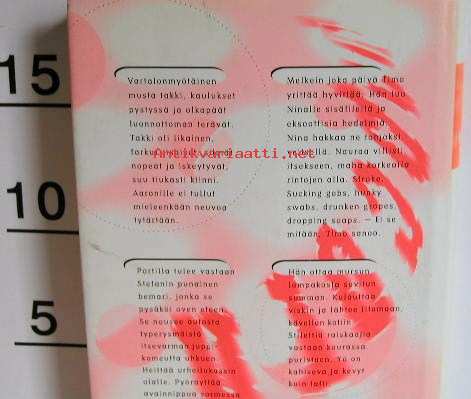 15
10
5
Vartalonmyötäinen
musta takki, kaulukset
pystyssä ja olkapäät
luonnottoman terävät.
Takki oli likainen,
nopeat ja iskeytyvät,
suu tiukasti kiinni.
Aaronille ei tullut
mieleenkään neuvoa
tytärtään.
Melkein joka päivä Timo
yrittää hyvittää. Hän tuo
Ninalle sisäfileitä ja
eksoottisia hedelmiä.
Nina hakkaa ne
Nauraa villisti
itsekseen, maha korkealla
ritilojen alla. Stroke.
Sucking gobs, hunky
swabs, drunken gropes,
dropping soaps. – Ei se
mitään, Timo sanoo.
Antikvariaatti.net
Portilla tulee vastaan
Stefanin punainen
bemari, jonka se
pysäköi oven eteen.
Se nousee autosta
typerysmäistä
itsevarman juppi-
komeutta uhkuen.
Heittää urheilukassin
olalle. Pyöräyttää
avainnippua sormessa
Hän ottaa mursun
lompakosta sovitun
summan. Kulauttaa
viskin ja lähtee litomaan,
kävellen kotiin.
Stilettiä raiskaajia
vastaan kourassa
puristaen. Yö on
kahiseva ja kevyt
kuin tafti.